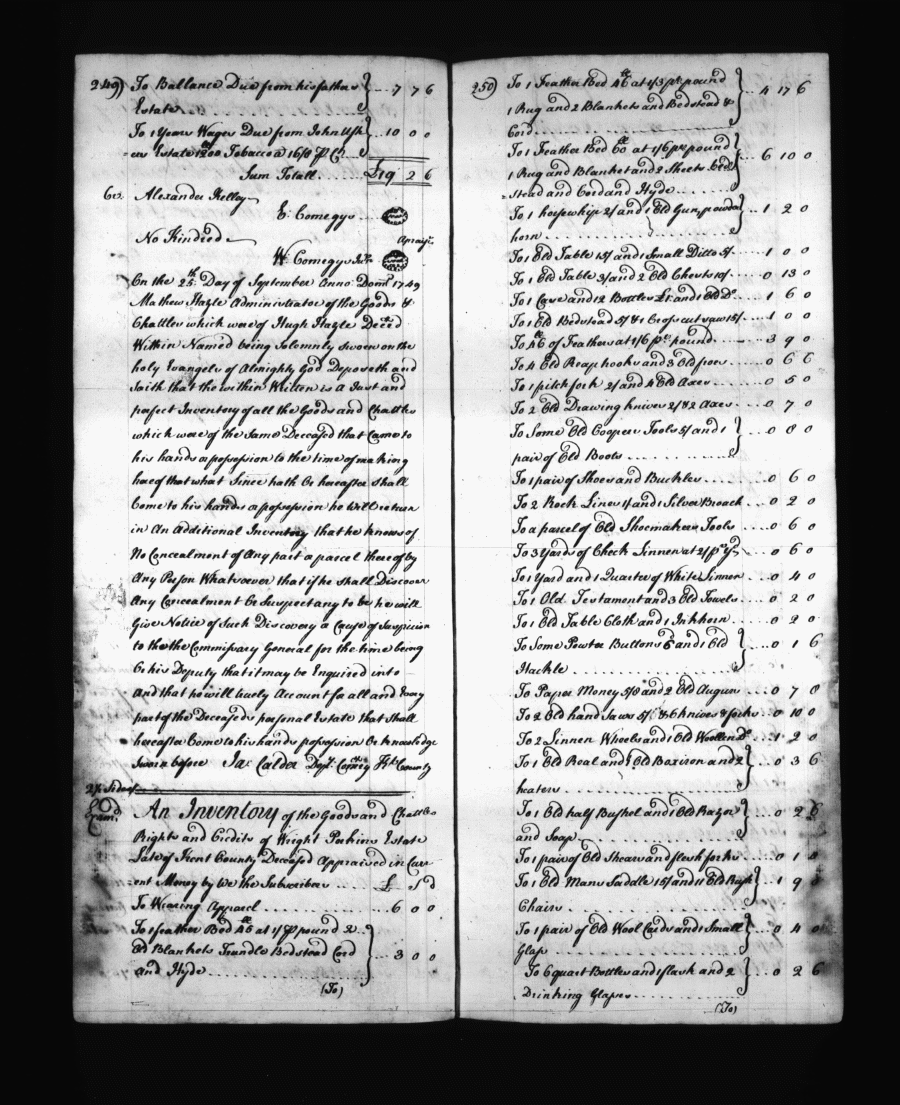 249) To Ballance Due from his father } . . 7 7 6
Estate
To 1 Years Wages Due from John Ush } . . 10 0 0
=ers Estate 1200 Tobacco a 16/8 P Ct
Sum Totall . . . . . . £19 2 6
Cr. Alexander Kelley
E: Comegys . . .
No Kindred
Apraisrs.
W: Comegys Junr.
On the 25th. Day of September Anno: Domi. 1749
Mathew Hazle Administrator of the Goods &
Chattles which were of Hugh Hazle Deced
Within Named being Solemnly sworn on the
holy Evangels of Almighty God Deposeth and
Saith that the within Written is a Just and
perfect Inventory of all the Goods and Chattles
which were of the same Deceased that Came to
his hands or possession to the time of making
hereof that what Since hath Or hereafter shall
Come to his hands or possession he will return
in An Additional Inventory that he knows of
No Concealment of Any part or parcel thereof by
Any Person Whatsoever that if he shall Discover
Any Concealment Or Suspect any to be he will
Give Notice of Such Discovery or Cause of Suspicion
to the the Commissary General for the time being
Or his Deputy that it may be Enquired into
And that he will truely Account for all and Every
part of the Deceaseds personal Estate that shall
hereafter Come to his hands possession Or knowledge
Sworn before Ja: Calder Depty. Comry Kt. County
2½ Sides
Examd. An Inventory of the Goods and Chattles
Rights and Credits of Wright Perkins Estate
Late of Kent County Deceased Appraised in Curr-
=ent Money by We the Subscribers . . . £ S d
To Wearing Apparel . . . . . . . . 6 0 0
To 1 feather Bed 45lb at 1/ P pound 2 }
Old Blankets Trundle Bedstead Cord } . . 3 0 0
and Hyde
(To)
250) To 1 Feather Bed 46lb at 1/3 pr. pound } . . 4 17 6
1 Rug and 2 Blankets and Bedstead &
Cord
To 1 Feather Bed 60lb at 1/6 pr. pound } . . 6 10 0
1 Rug and Blanket and 2 Sheets bed
=stead and Cord and Hyde
To 1 horsewhip 2/ and 1 Old Gun powder } . . 1 2 0
horn
To 1 Old Table 15/ and 1 Small Ditto 5/ . . . 1 0 0
To 1 Old Table 3/ and 2 Old Chests 10/ . . . 0 13 0
To 1 Case and 12 Bottles £1. and 1 Old Do. . . 1 6 0
To 1 Old Bedstead 5/ & 1 Cross cut saw 15/ . . . 1 0 0
To 46lb of Feathers at 1/6 pr. pound . . . 3 9 0
To 4 Old Reap hooks and 3 Old hoes . . . 0 6 6
To 1 pitch fork 2/ and 4 Old Axes . . . 0 5 0
To 2 Old Drawing knives 2/ & 2 Axes . . . 0 7 0
To Some Old Coopers Tools 5/ and 1 } . . 0 8 0
pair of Old Boots
To 1 pair of Shoes and Buckles . . . 0 6 0
To 2 Rock Lines 1/ and 1 Silver Broach . . . 0 2 0
To a parcel of Old Shoemakers Tools . . . 0 6 0
To 3 Yards of Check Linnen at 2/ pr. Yd. . . 0 6 0
To 1 Yard and 1 Quarter of White Linnen . . 0 4 0
To 1 Old Testament and 3 Old Towels . . . 0 2 0
To 1 Old Table Cloth and 1 Inkhorn . . . 0 2 0
To Some Pewter Buttons 6d and 1 Old } . . 0 1 6
Hackle
To Paper Money 5/8 and 2 Old Augurs . . . 0 7 8
To 2 Old hand Saws 5/ & 6 knives & forks . . 0 10 0
To 2 Linnen Wheels and 1 Old Woollen Do. . . 1 2 0
To 1 Old Real and 1 Old Box iron and 2 } . . 0 3 6
heaters
To 1 Old half Bushel and 1 Old Razor } . . 0 2 6
and Soap
To 1 pair of Old Shears and flesh forks . . 0 1 8
To 1 Old Mans Saddle 15/ and 11 Old Rush } . . 1 9 0
Chairs
To 1 pair of Old Wool Cards and 1 Small } . . 0 4 0
Glass
To 6 quart Bottles and 1 flask and 2 } . . 0 2 6
Drinking Glasses
(To)